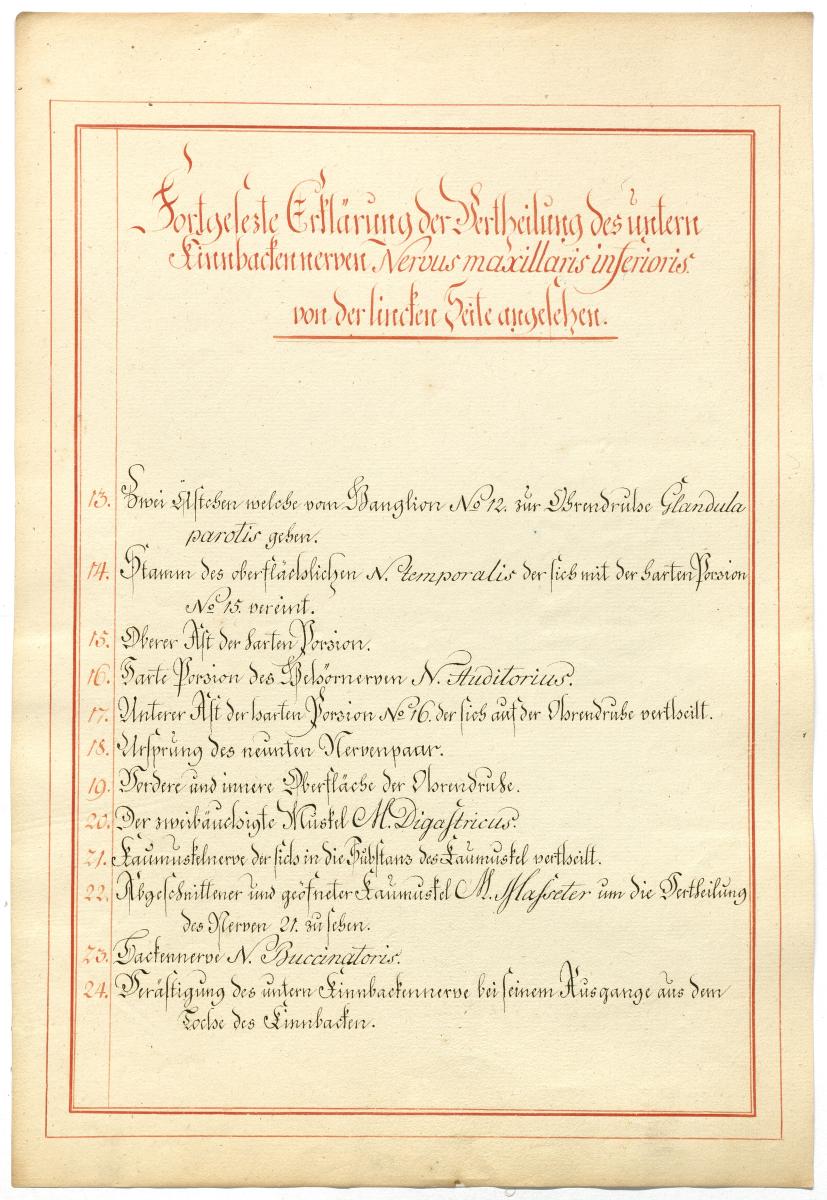 Fortgesezte Erklärung der Vertheilung des untern
Kinnbackennerven Nervus maxillaris inferioris.
von der lincken Seite angesehen.
13. Zwei Ästchen welche vom Ganglion No 12. zur Ohrendruhse Glandula
parotis gehen.
14. Stamm des oberflächlichen N. temporalis der sich mit der harten Porzion
No 15. vereint.
15. Oberer Ast der harten Porzion.
16. Harte Porzion des Gehörnerven N. Auditorius.
17. Unterer Ast der harten Porzion No 16. der sich auf der Ohrendruhse vertheilt.
18. Ursprung des neunten Nervenpaar.
19. Vordere und innere Oberfläche der Ohrendruhse.
20. Der zweibäuchigte Muskel M. Digastricus.
21. Kaumuskelnerve der sich in die Substanz des Kaumuskel vertheilt.
22. Abgeschnittener und geöfneter Kaumuskel M. Masseter um die Vertheilung
des Nerven 21. zu sehen.
23. Backennerve N. Buccinatoris.
24. Verästigung des untern Kinnbackennerve bei seinem Ausgange aus dem
Loche des Kinnbacken.